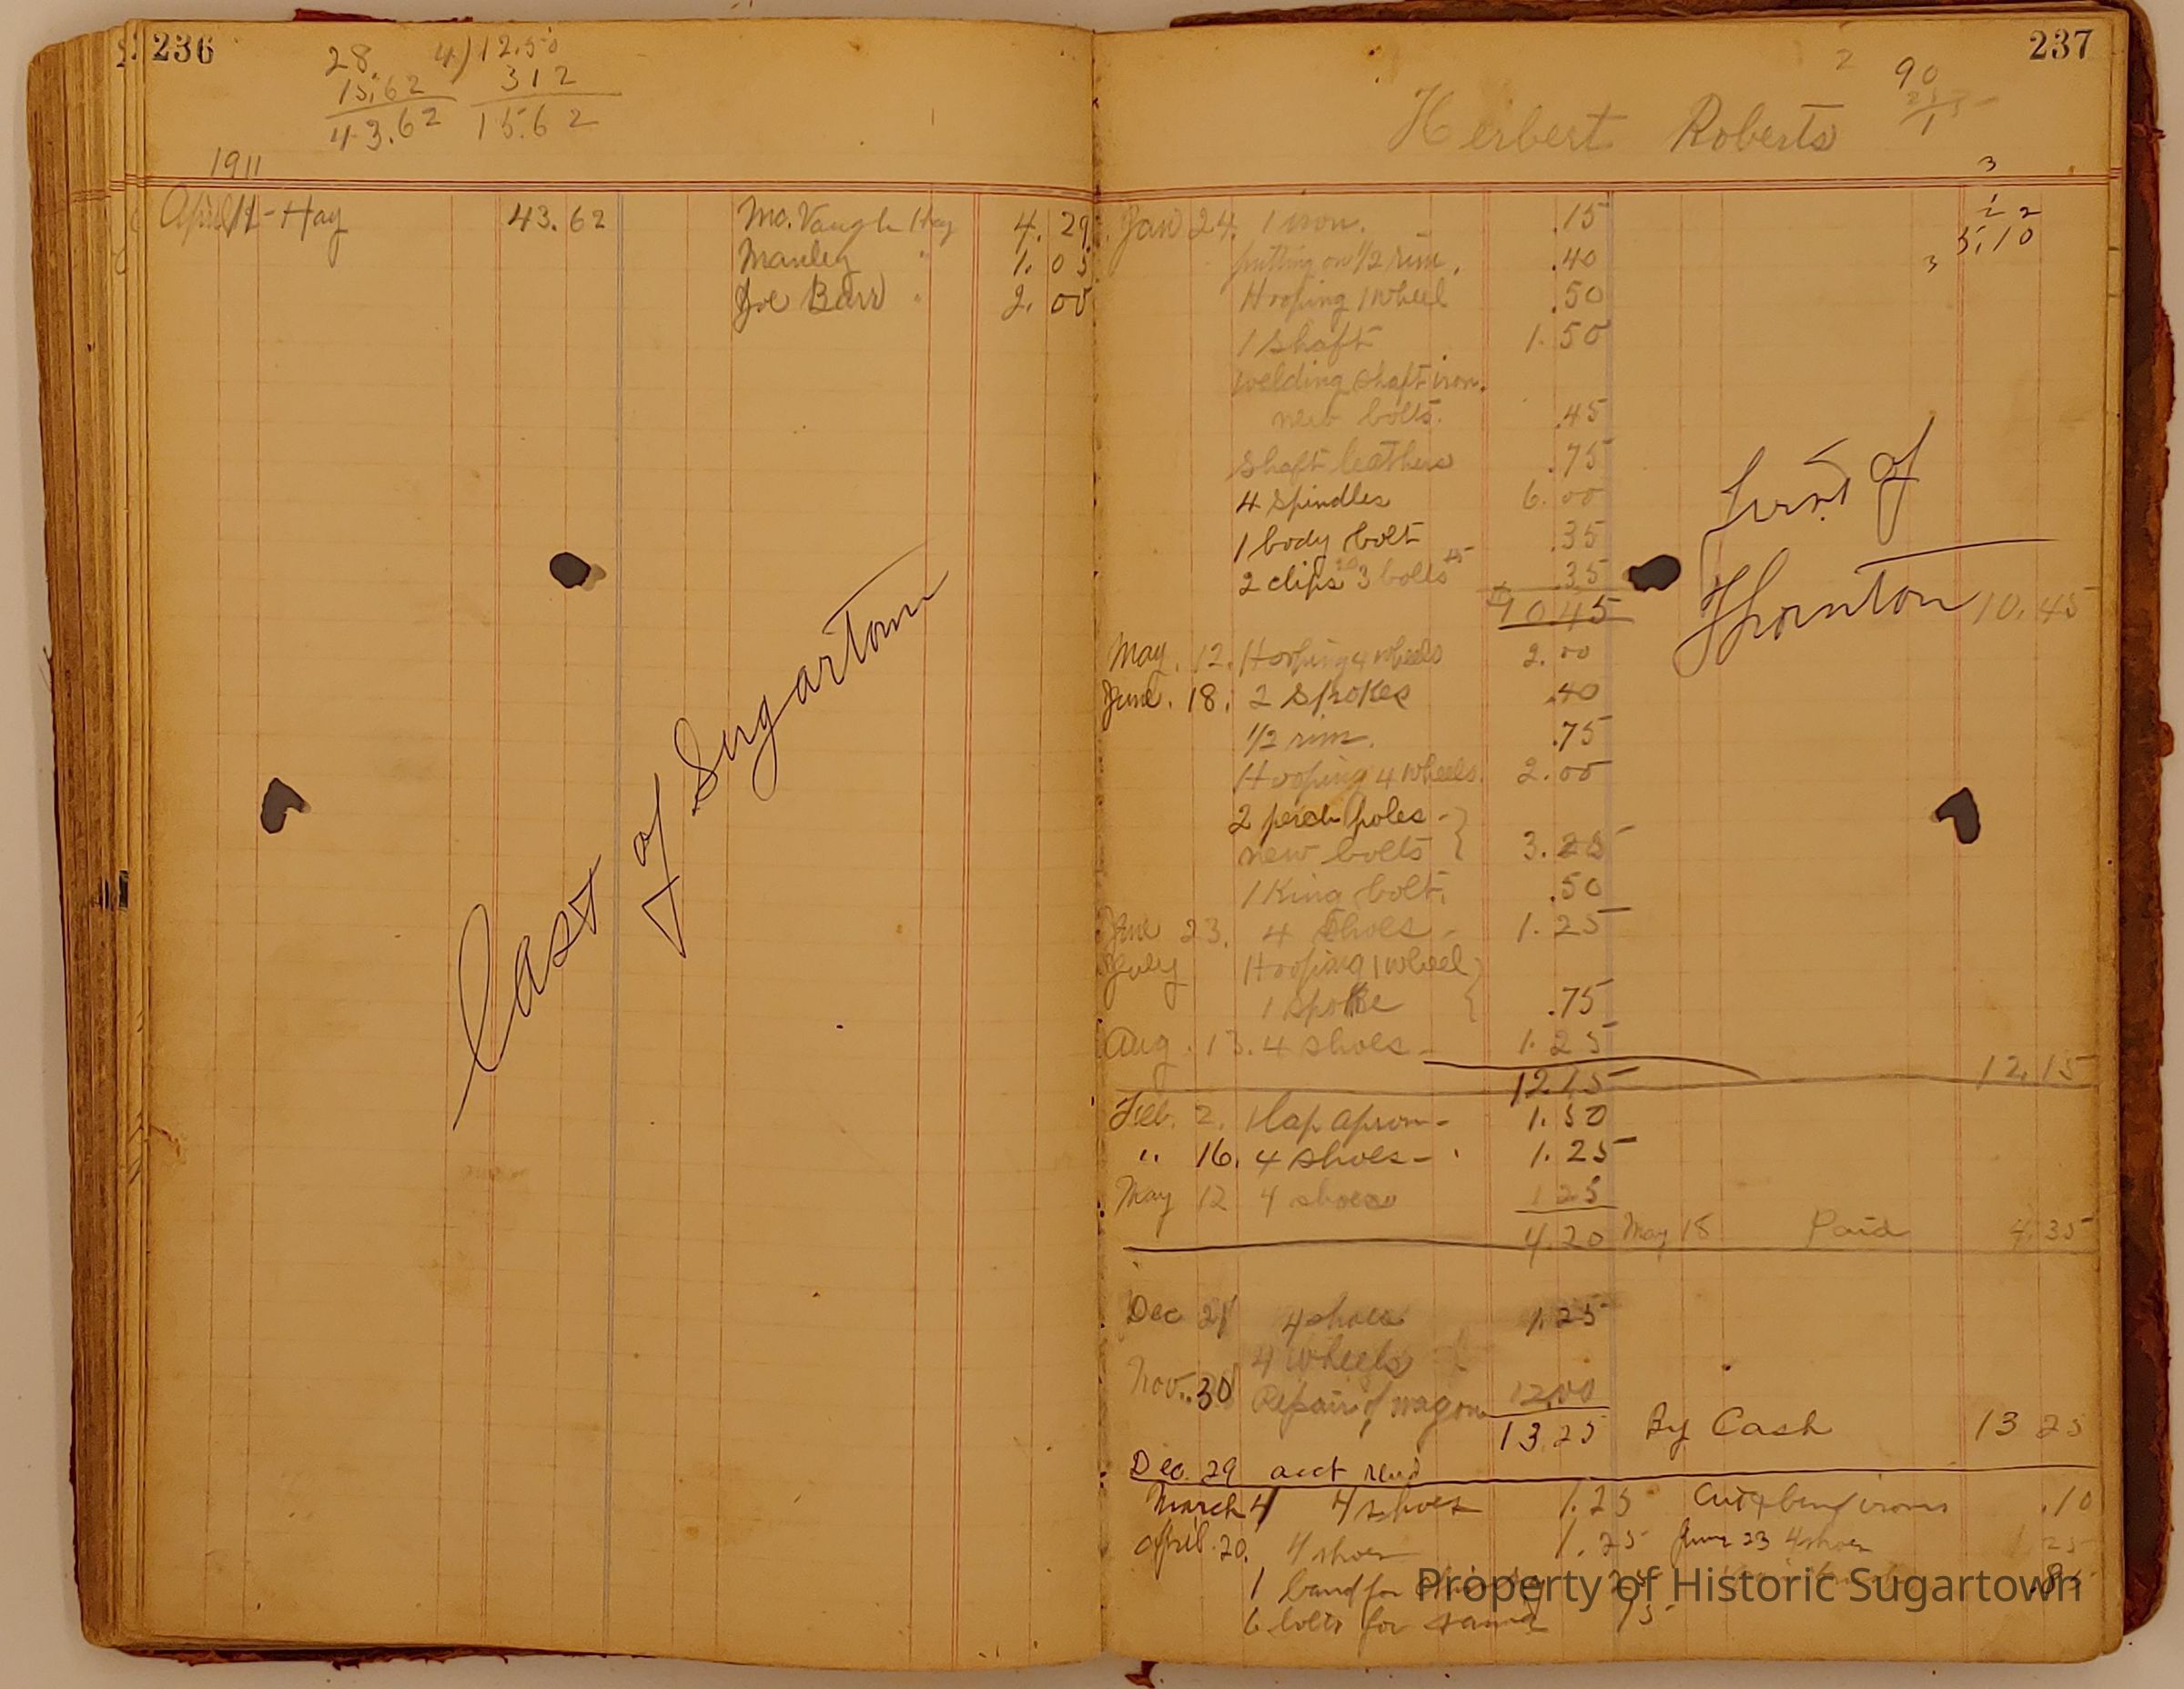 236
28.
15.62
43.62
4)12.50
312
15.62
1911
April 12 - Hay 43.62
Mc. Vaugh Hay 4.29
Manley " 1.05
Joe Barr " 2.00
East of Sugartown
237
2 90
Herbert Roberts
3
5.10
3
Jan 24. 1 iron. .15
putting on 1/2 rim. .40
Hooping 1 wheel .50
1 Shaft 1.50
welding shaft iron.
new bolts. .45
Shaft leathers .75
4 Spindles 6.00
1 body bolt .35
2 clips 20 3 bolts 15 .35
$10.45
10.45
of
Thornton
May. 12. Hooping 4 wheels 2.00
June. 18. 2 Spokes .40
1/2 rim. .75
Hooping 4 wheels. 2.00
2 perch poles -
new bolts 3.25
1 King bolt. .50
June 23. 4 Shoes - 1.25
July Hooping 1 wheel
1 spoke .75
Aug. 13. 4 shoes - 1.25
12.15
12.15
Feb. 2. 1 lap apron - 1.50
" 16. 4 shoes - 1.25
May 12 4 shoes 1 25
4.20 May 18 Paid 4.35
Dec 21 4 shoes 1.25
4 wheels
Nov. 30 Repair of wagon 12.00
13 25 By Cash 13 25
Dec. 29 acct
March 4 4 shoes 1.25 Cut & bend irons .10
April. 20. 4 shoes 1.25 June 23 4 shoes 1 25
1 band for
6 bolts for same 15
Property of Historic Sugartown